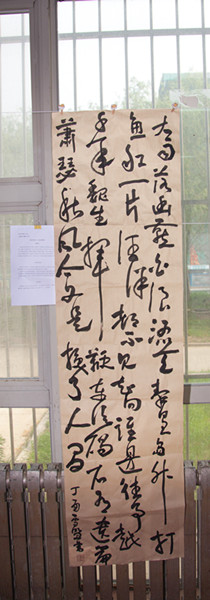 大雨落幽燕白浪滔天秦皇岛外打
鱼船一片汪洋都不见知向谁边往事越
千年魏武挥鞭东临碣石有遗篇
萧瑟秋风今又是换了人间
丁酉书